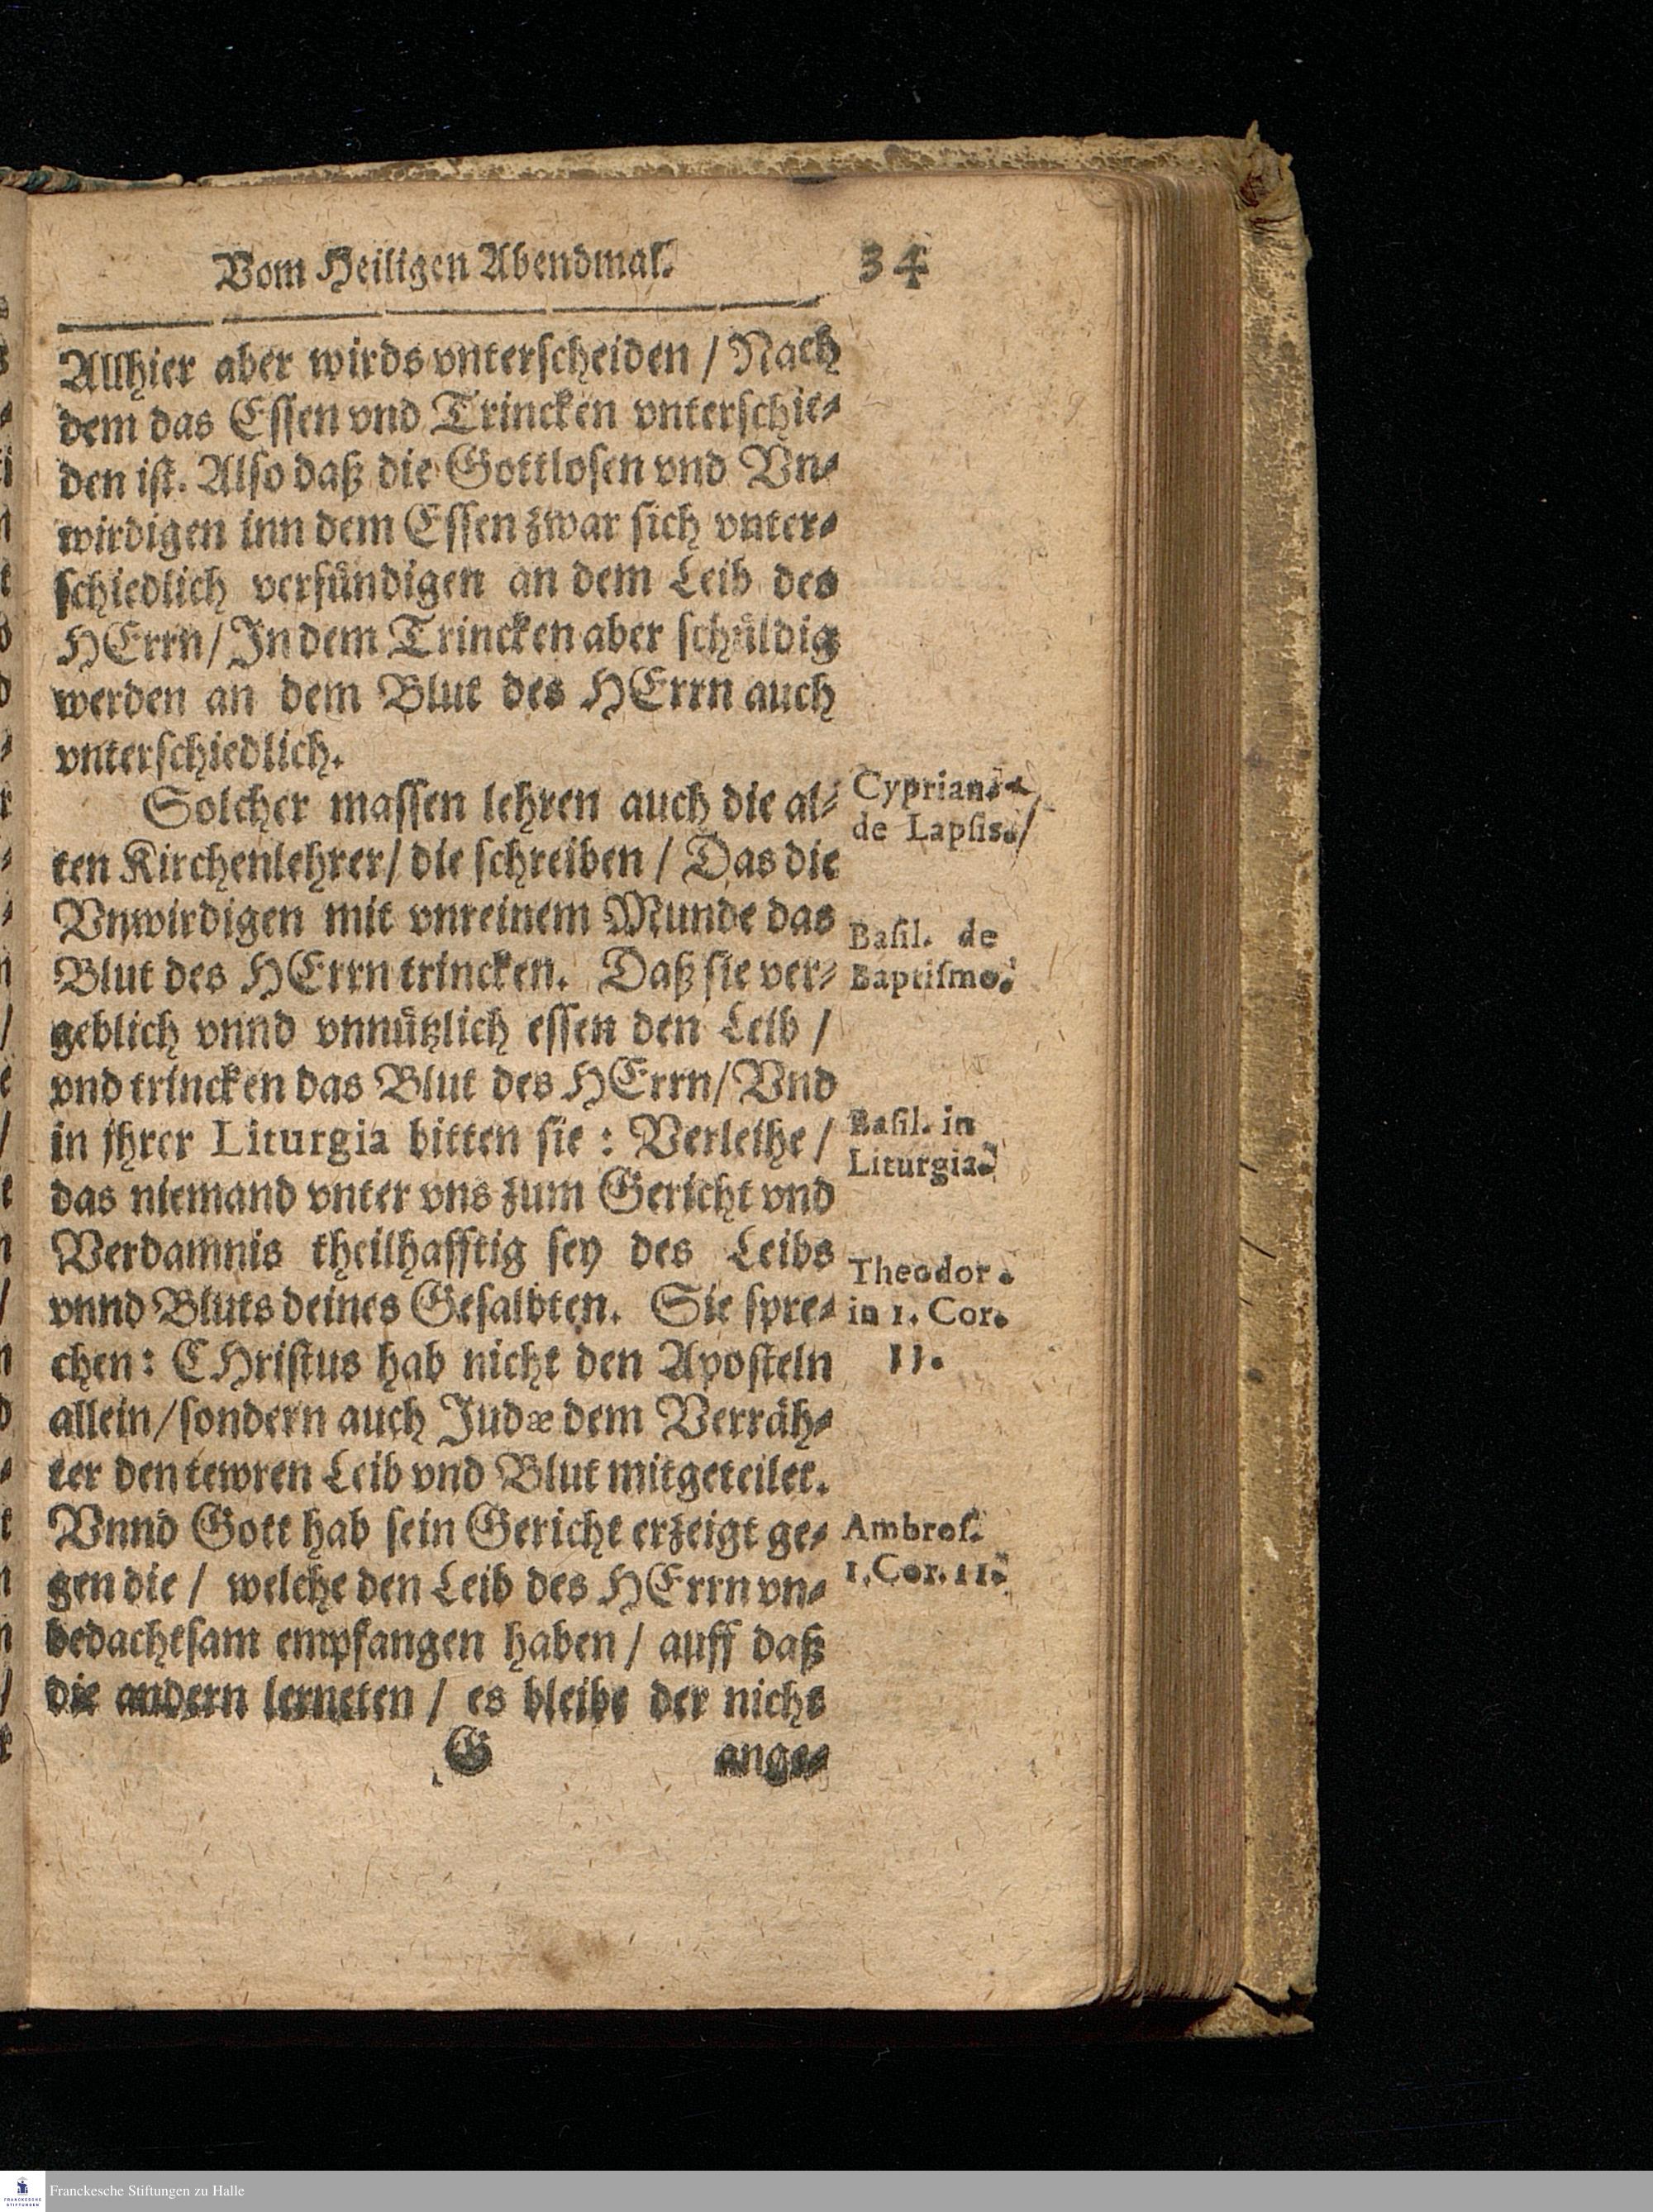 Vom Heiligen Abendmal. 34
Allhier aber wirds vnterscheiden / Nach
dem das Essen vnd Trincken vnterschie-
den ist. Also daß die Gottlosen vnd Vn-
wirdigen inn dem Essen zwar sich vnter-
schiedlich versündigen an dem Leib des
HErrn / In dem Trincken aber schüldig
werden an dem Blut des HErrn auch
vnterschiedlich.
Solcher massen lehren auch die al-
ten Kirchenlehrer / die schreiben / Das die
Vnwirdigen mit vnreinem Munde das
Blut des HErrn trincken. Daß sie ver-
geblich vnnd vnnützlich essen den Leib /
vnd trincken das Blut des HErrn / Vnd
in ihrer Liturgia bitten sie : Verleihe /
das niemand vnter vns zum Gericht vnd
Verdamnis theilhafftig sey des Leibs
vnnd Bluts deines Gesalbten. Sie spre-
chen : CHristus hab nicht den Aposteln
allein / sondern auch Judæ dem Verräh-
ter den tewren Leib vnd Blut mitgeteilet.
Vnnd Gott hab sein Gericht erzeigt ge-
gen die / welche den Leib des HErrn vn-
bedachtsam empfangen haben / auff daß
die andern lerneten / es bleibe der nicht
G ange-
Cyprian.
de Lapsis.
Basil. de
Baptismo.
Basil. in
Liturgia.
Theodor.
in 1. Cor.
11.
Ambros.
1. Cor. 11.
Franckesche Stiftungen zu Halle
FRANCKESCHE
STIFTUNGEN